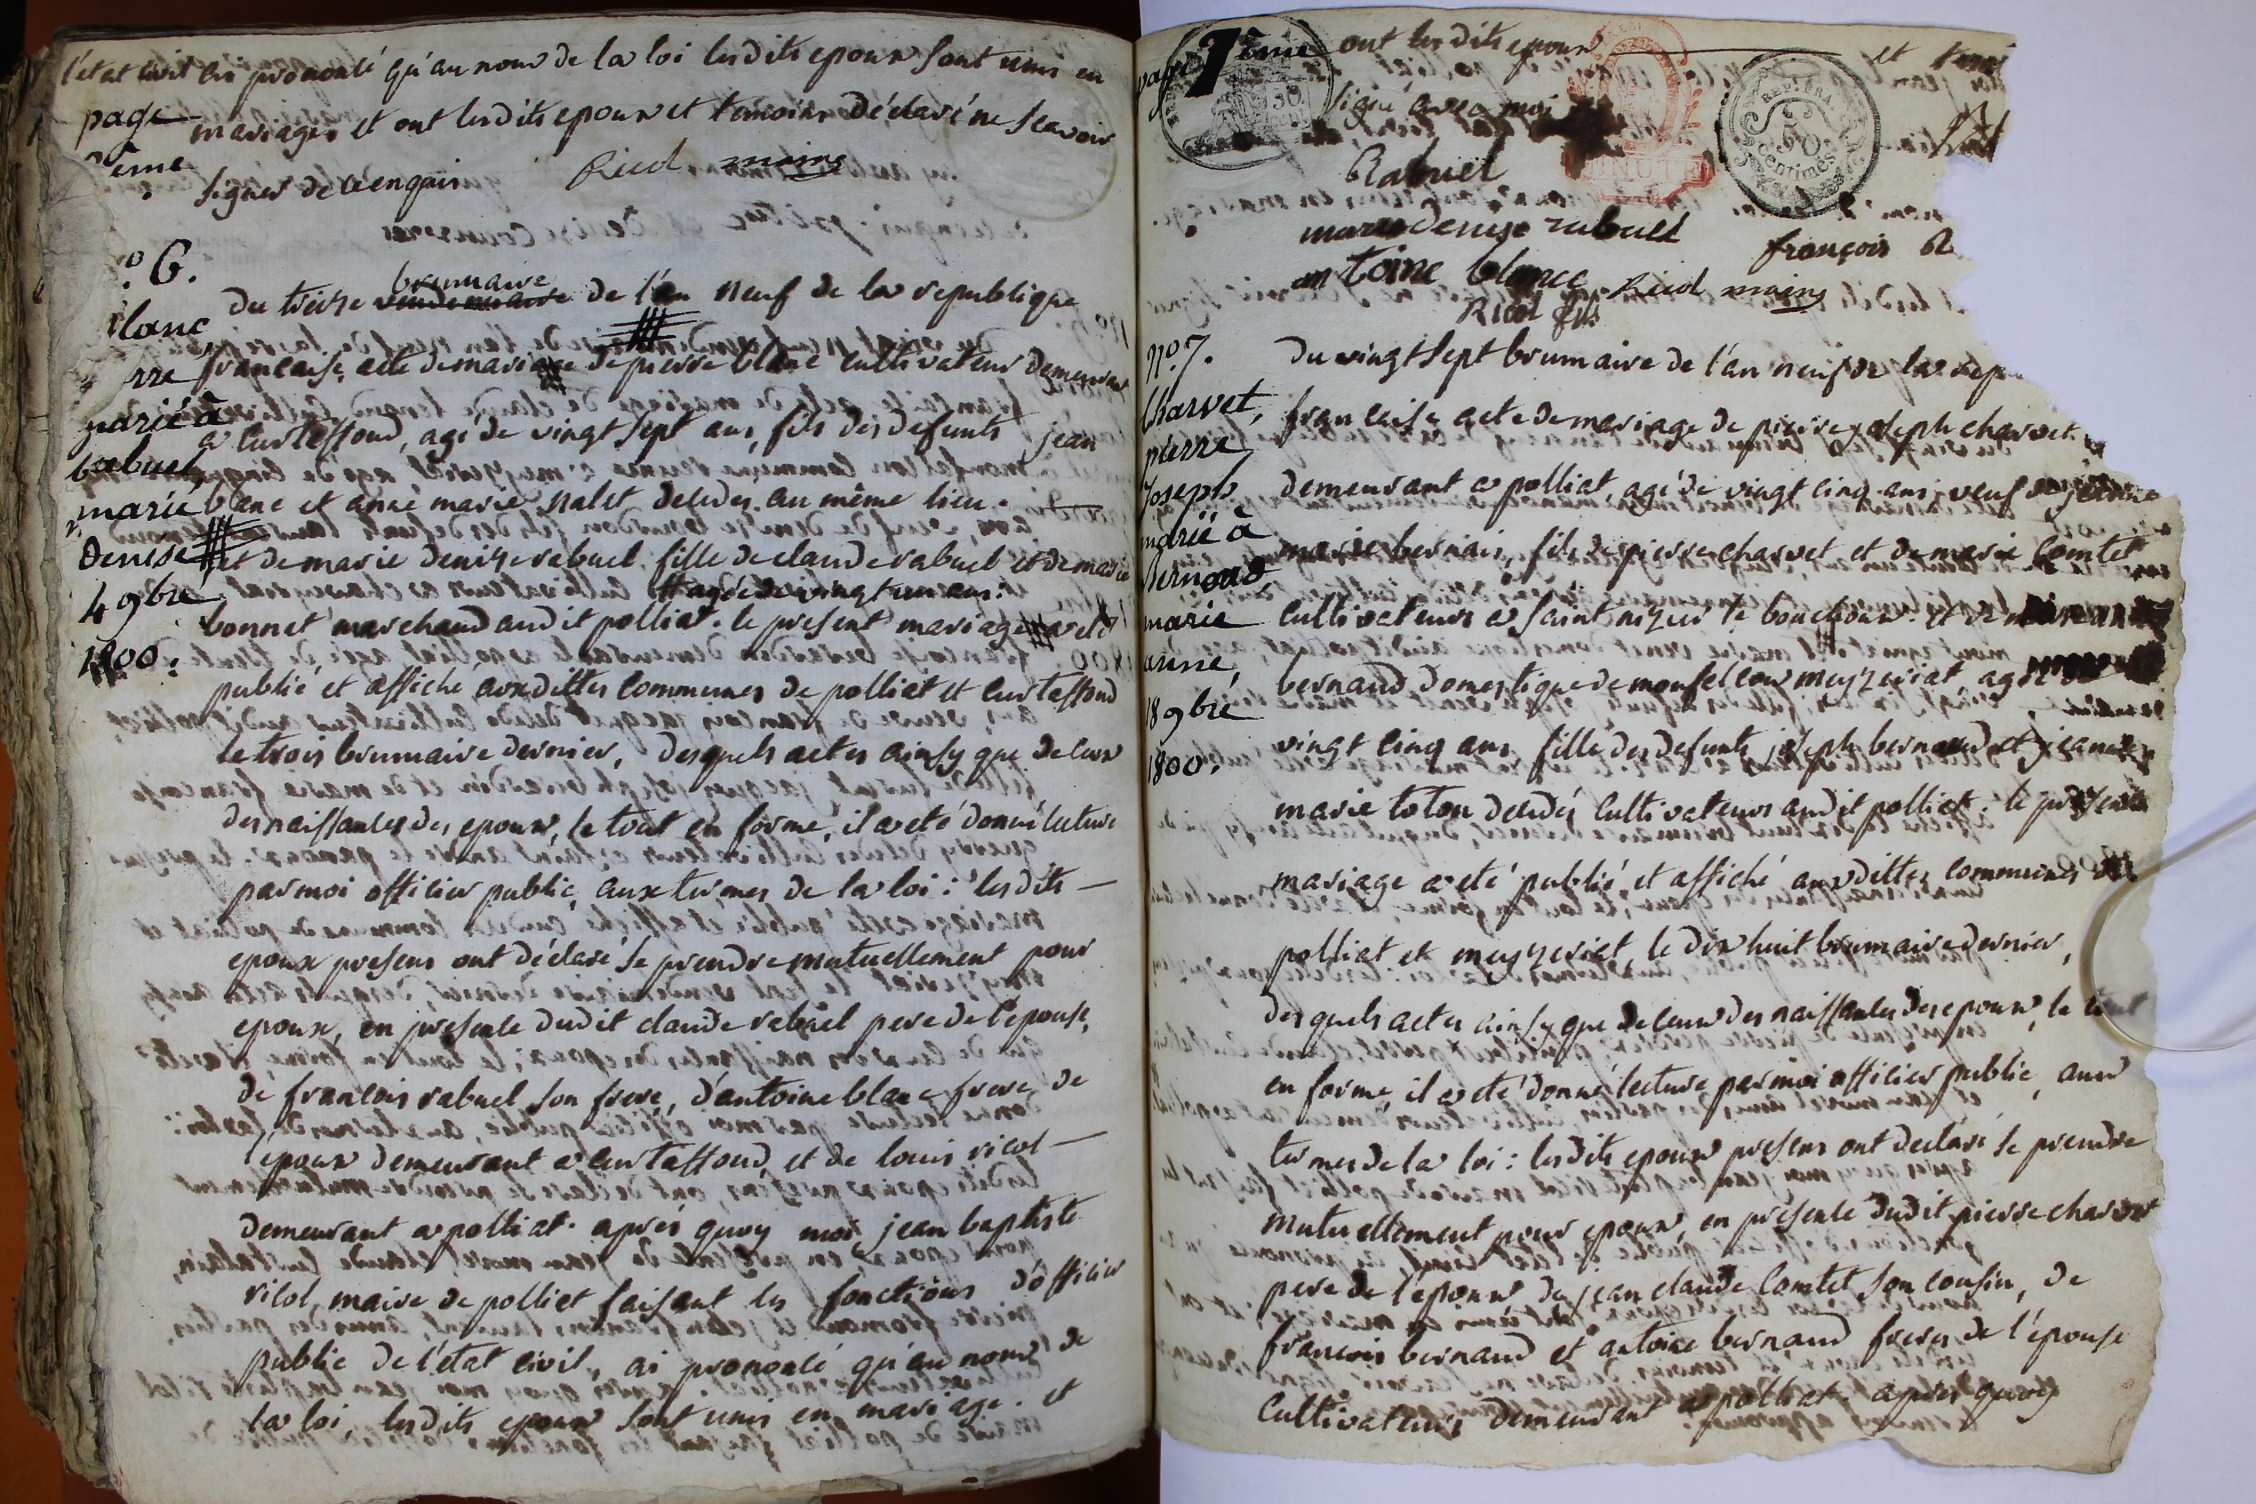 l'état civil ai prononcé qu'au nom de la loi lesdits epoux sont unis en
page
mariage, et ont lesdits epoux et temoins déclaré ne scavoir
ème
signer de ce enquis Ricol maire
° 6.
brumaire
du treize vendemiaire de l'an neuf de la republique
lanc
francaise, acte de mariage de pierre blanc cultivateur demeurant
rre
marié à
a Curtaffond, agé de vingt sept ans, fils des defunts jean
rabuel
blanc et anne marie nalet decedes au même lieu.
marie
denise
et de marie denize rabuel fille de claude rabuel et de marie
agée de vingt un ans.
4 9bre
bonnet marchand audit polliat. le present mariage a eté
1800.
publié et affiché auxdittes communes de polliat et curtaffond
le trois brumaire dernier, desquels actes ainsy que de ceux
des naissances des epoux, le tout en forme, il a eté donné lecture
par moi officier public, aux termes de la loi : lesdits
epoux presens ont déclaré se prendre mutuellement pour
epoux, en presence dudit claude rabuel pere de l'epouse,
de francois rabuel son frere, d'antoine blanc frere de
l'epoux demeurant a curtaffond, et de louis ricol
demeurant a polliat. après quoy moi jean baptiste
ricol, maire de polliat faisant les fonctions d'officier
public de l'état civil, ai prononcé qu'au nom de
la loi, lesdits epoux sont unis en mariage. et
page 7ème ont lesdits epoux et temoi
signé avec moi
Rabuel
marie denise rabuel
françois R
antoine blanc Ricol maire
Ricol fils
n° 7.
du vingt sept brumaire de l'an neuf de la repu
Charvet,
francaise acte de mariage de pierre joseph charvet
pierre
Joseph
demeurant a polliat, agé de vingt cinq ans, veuf de
marié à
marie bernais, fils de pierre charvet et de marie Comtet
Bernoud
cultivateurs a saint nizier le bouchoux. et de
marie
anne,
bernaud domestique de monfalcon meyzeriat, agée de
18 9bre
vingt cinq ans fille des defunts joseph bernaud et jeanne
1800.
marie toton decedés cultivateurs audit polliat. le present
mariage a eté publié et affiché auxdittes communes de
polliat et meyzeriat, le dix huit brumaire dernier,
desquels actes ainsy que de ceux des naissances des epoux, le tout
en forme, il a eté donné lecture par moi officier public, aux
termes de la loi : lesdits epoux presens ont declaré se prendre
mutuellement pour epoux, en presence dudit pierre charvet
pere de l'epoux, de jean claude Comtet son cousin, de
francois bernaud et antoine bernaud freres de l'épouse
cultivateurs demeurant a polliat. après quoy
REP. FRA.
50
centimes